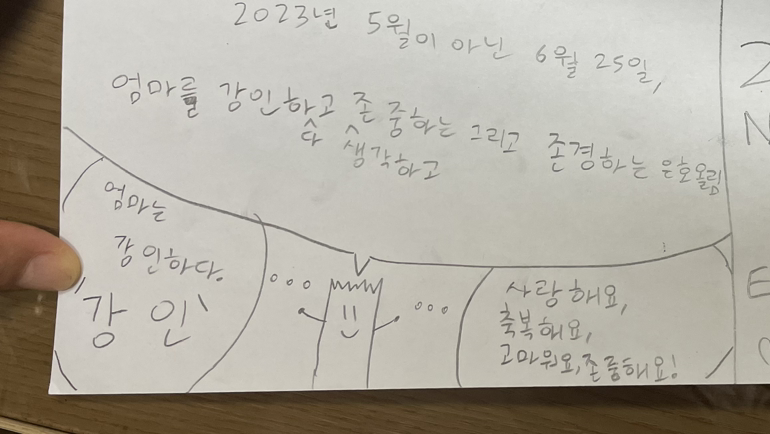 2023년 5월이 아닌 6월 25일,
엄마를 강인하고 존중하는 그리고 존경하는 은호올림
다 생각하고
엄마는
강인하다.
'강인'
사랑해요,
축복해요,
고마워요, 존중해요!